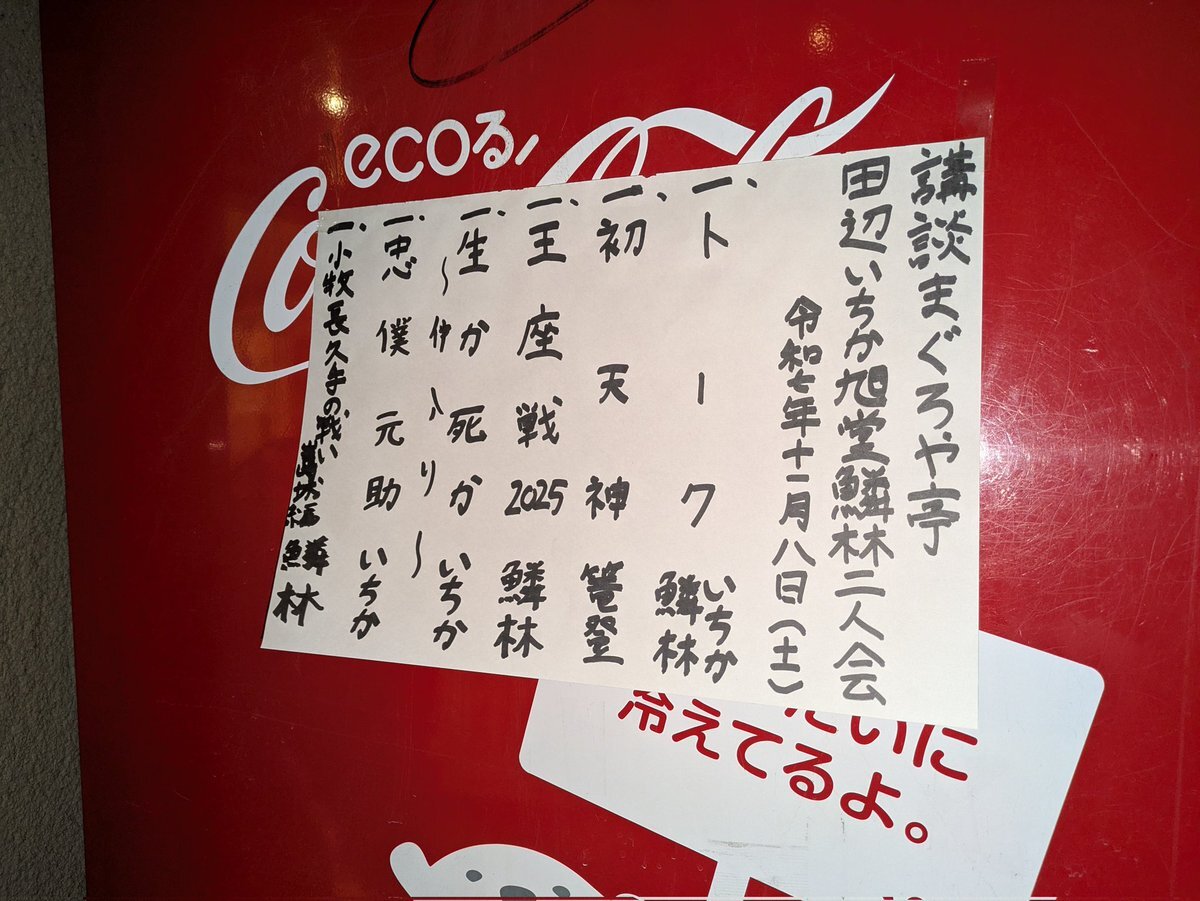 講談まぐろや亭
田辺いちか旭堂鱗林二人会
令和七年十一月八日(土)
一、トーク いちか 鱗林
一、初天神 篭登
一、王座戦2025 鱗林
一、生か死か いちか
〜仲入り〜
一、忠僕元助 いちか
一、小牧長久手の戦い 鱗林
ecoる/
Co
たいに
冷えてるよ。